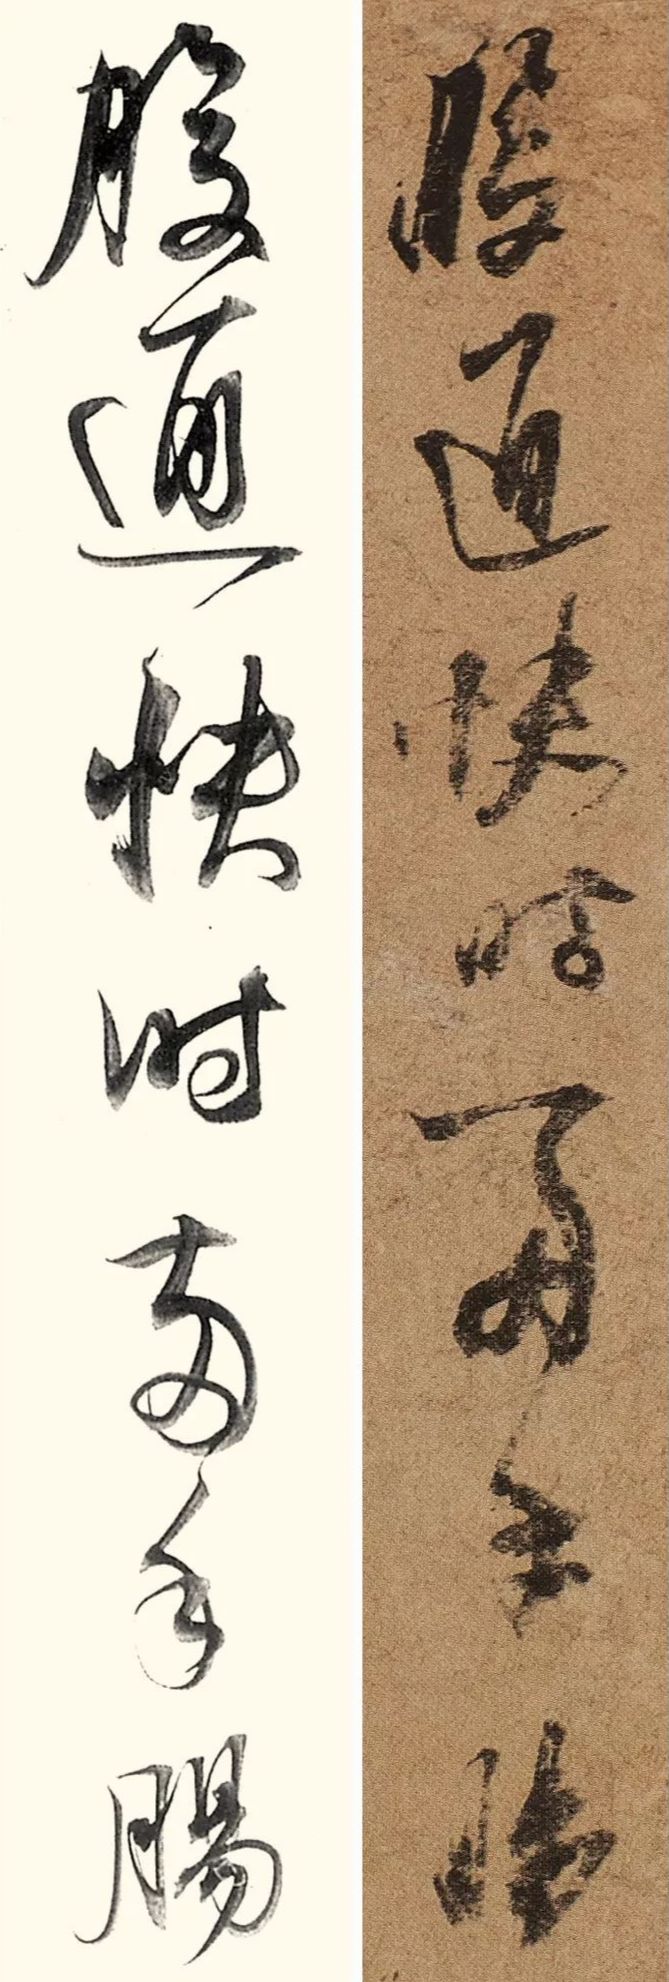 腹通快時兩手腸
腹通快時兩手腸